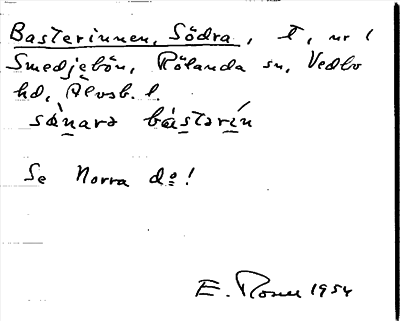 Basterinnen, Södra, T, nr 1
Smedjebön, Rölanda sn, Vedbo
hd, Älvsb. l.
sø̀narə bástərín
Se Norra d:o!
E. Rosell 1954